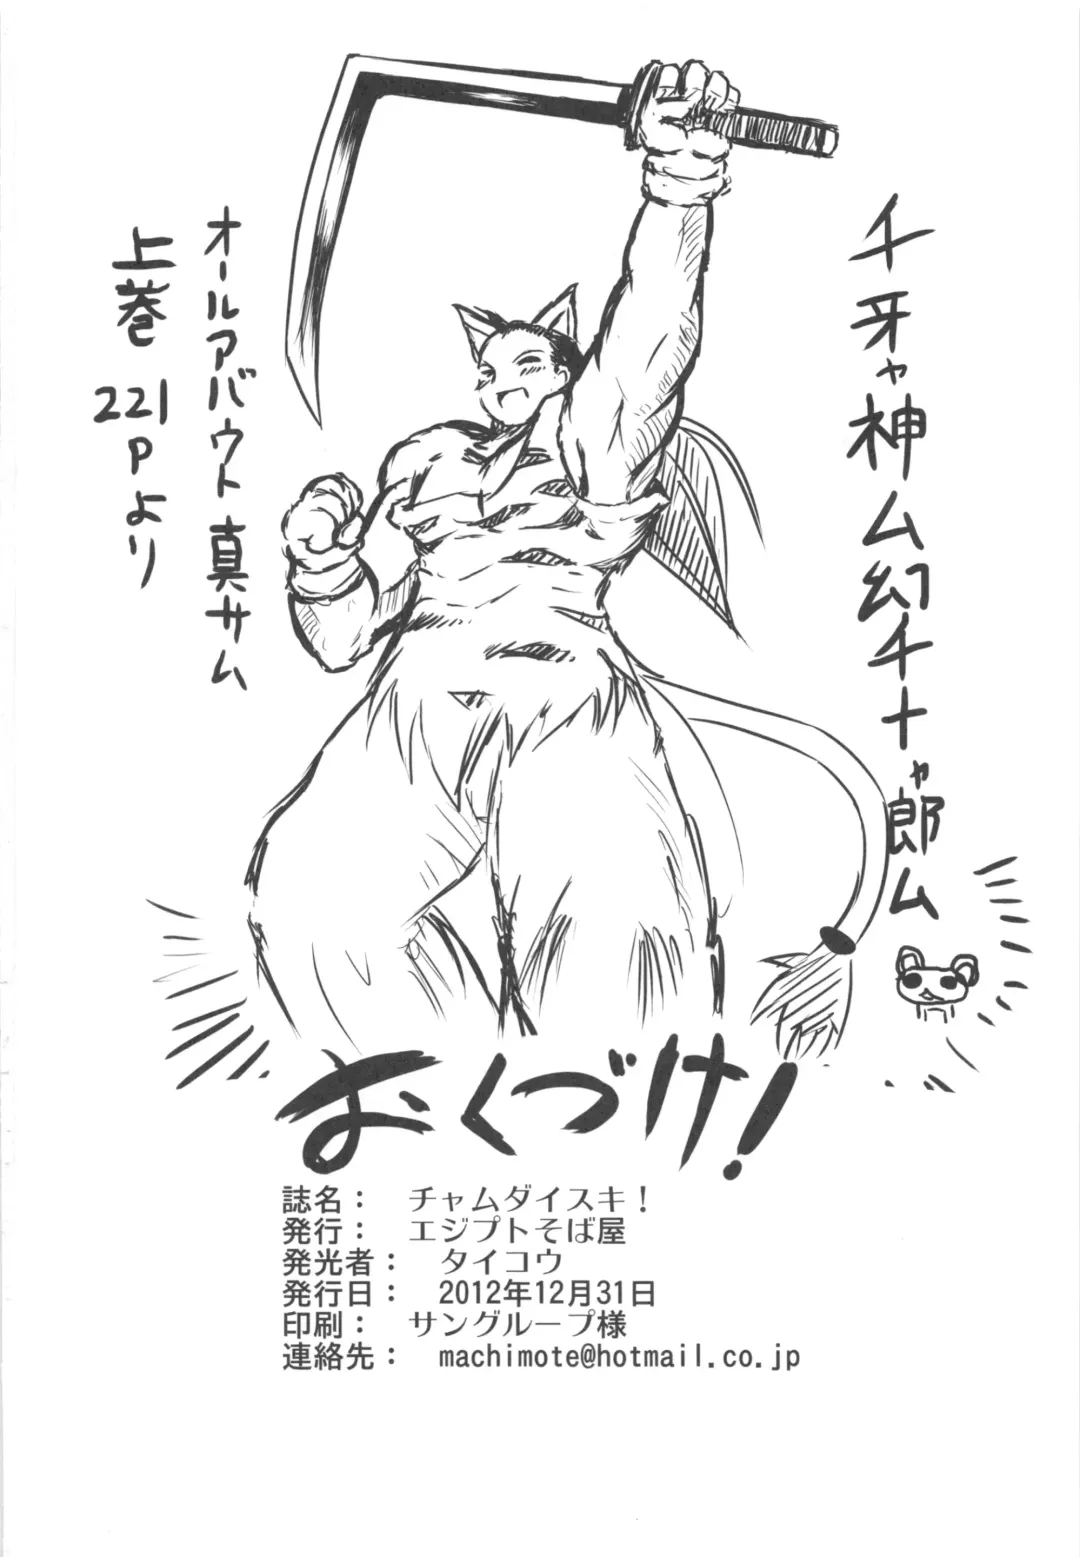 千牙ャ神ム幻千ナャ郎ム
オールアバウト真サム
上巻
221Pより
おくづけ!
誌名： チャムダイスキ！
発行： エジプトそば屋
発光者： タイコウ
発行日： 2012年12月31日
印刷： サングループ様
連絡先： machimote@hotmail.co.jp